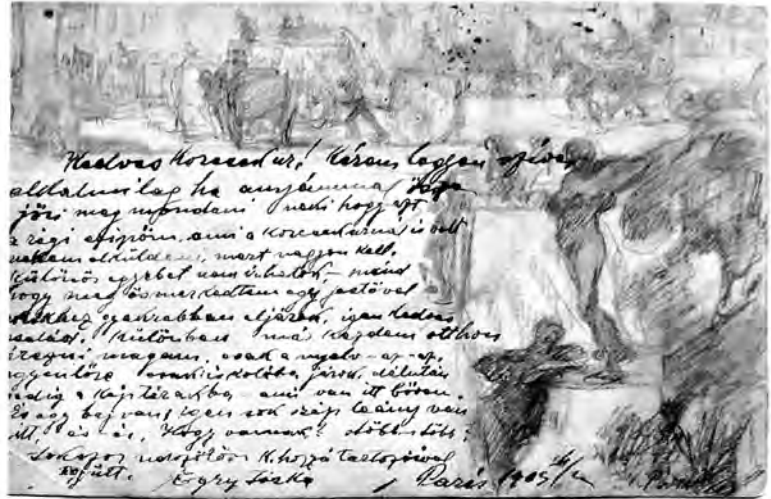 Kedves Korcsek úr! Kérem legyen szíves
alkalmilag ha anyámmal össze
jön megmondani neki hogy azt
a régi cipőm, ami a Korcsek úrnál is volt
nekem elküldeni, mert nagyon kell.
Különös egyebet nem írhatok, – mind
hogy megösmerkedtem egy festővel
gyakrabban eljárok, igen kedves
család. Különben már kezdem otthon
érezni magam, csak a nyelv – az – az.
egyenlőre csak iskolába járok, délután
pedig a képtárakba – ami van itt bőven.
És egy baj van, igen sok szép leány van
itt, és – és. Hogy vannak?
Sokszor üdvözlöm K. hozzátartozóival
együtt. Egry Jóska Paris 1905